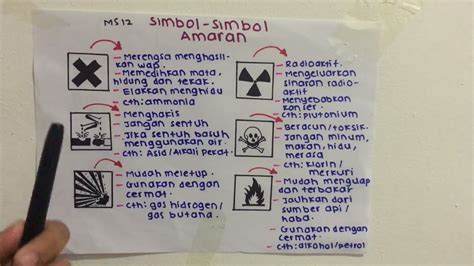 MS12
SIMBOL-SIMBOL
AMARAN
- Merengsa menghasil
kan wap.
- Memedihkan mata,
hidung dan tekak.
- Elakkan menghidu
- cth: ammonia
- Menghakis
- Jangan sentuh
- Jika sentuh basuh
menggunakan air.
- cth: Asid/Alkali pekat.
- Mudah meletup.
- Gunakan dengan
cermat.
- cth: gas hidrogen/
gas butana.
- Radioaktif.
- Mengeluarkan
sinaran radio-
aktif
- Menyebabkan
kanser.
- cth: plutonium
- Beracun/toksik.
- Jangan minum,
makan, hidu,
merasa
- cth: klorin/
merkuri
- Mudah mengwap
dan terbakar
- Jauhkan dari
sumber api/
haba.
- Gunakan dengan
cermat.
- cth: alkohol/petrol